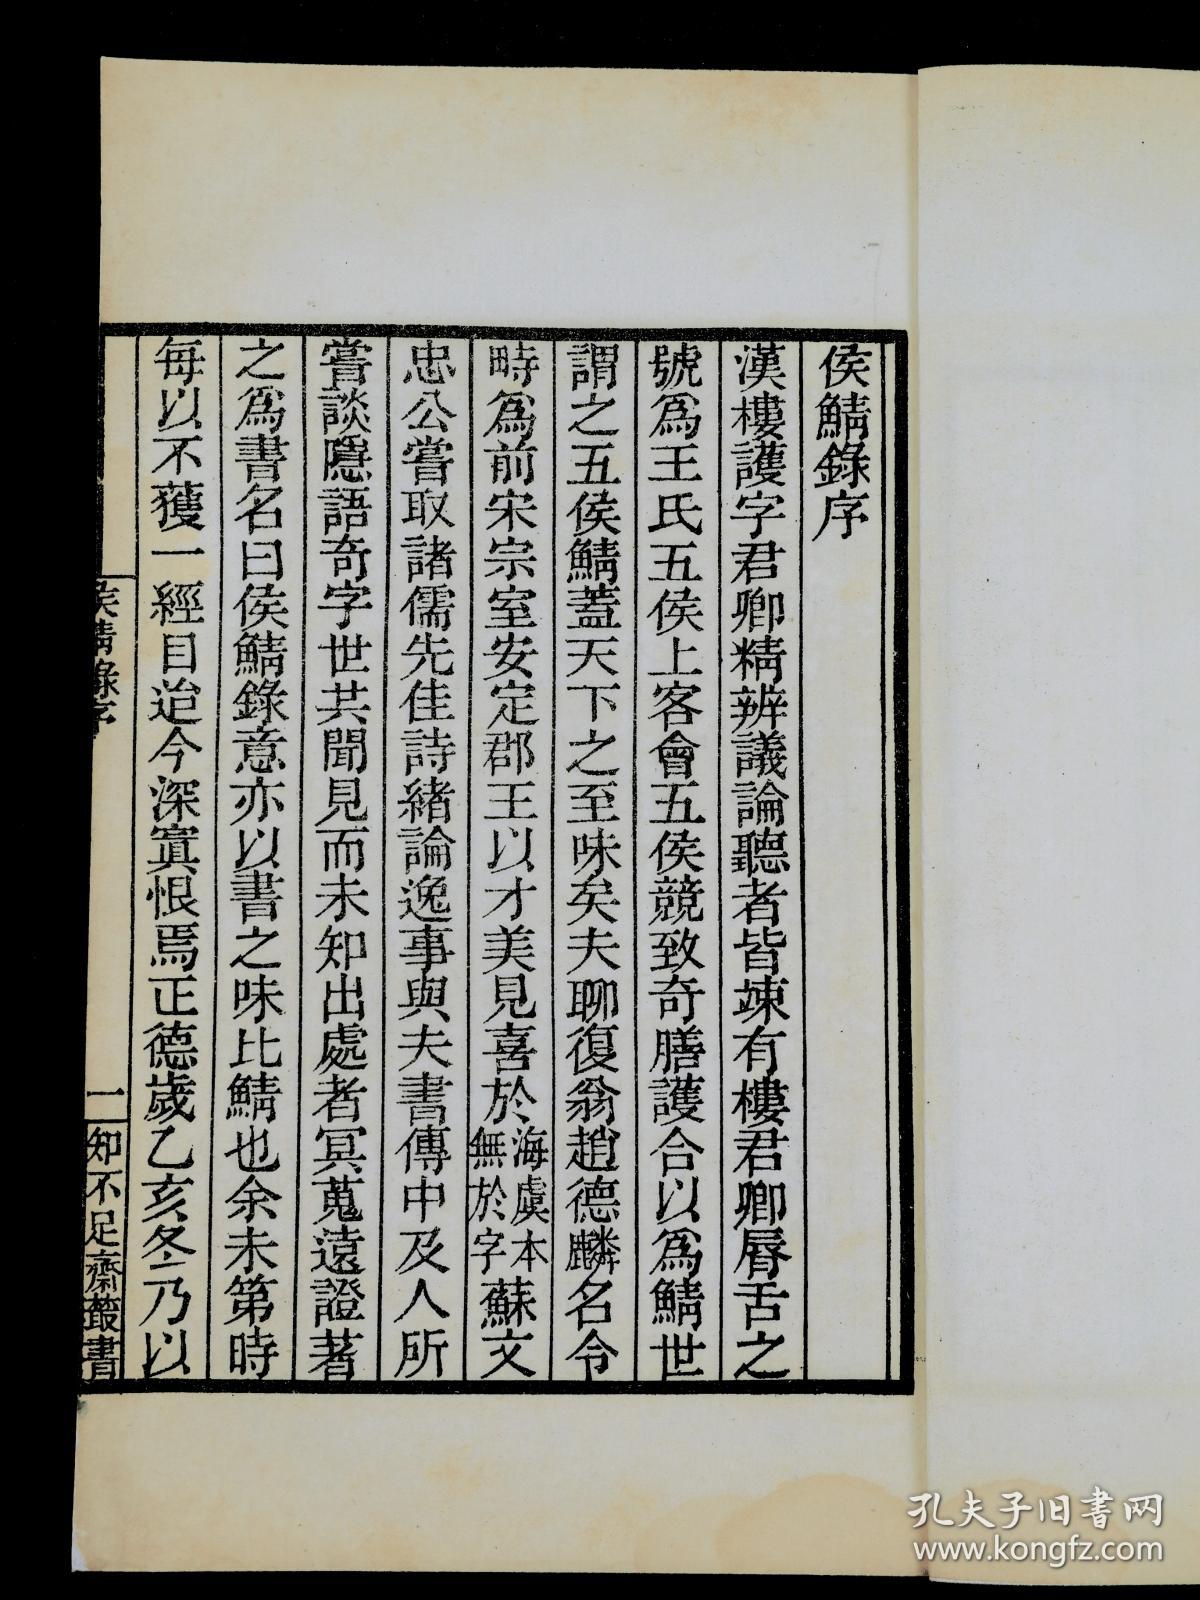 侯鯖錄序
漢樓護字君卿精辨議論聽者皆竦有樓君卿脣舌之
號爲王氏五侯上客會五侯競致奇膳護合以爲鯖世
謂之五侯鯖蓋天下之至味矣夫聊復翁趙德麟名令
時爲前宋宗室安定郡王以才美見喜於海虞本無於字蘇文
忠公嘗取諸儒先佳詩緒論逸事與夫書傳中及人所
嘗談隱語奇字世共聞見而未知出處者冥蒐遠證著
之爲書名曰侯鯖錄意亦以書之味比鯖也余未第時
每以不獲一經目迨今深寘恨焉正德歲乙亥冬乃以
侯鯖錄序
一
知不足齋叢書
孔夫子旧书网
www.kongfz.com